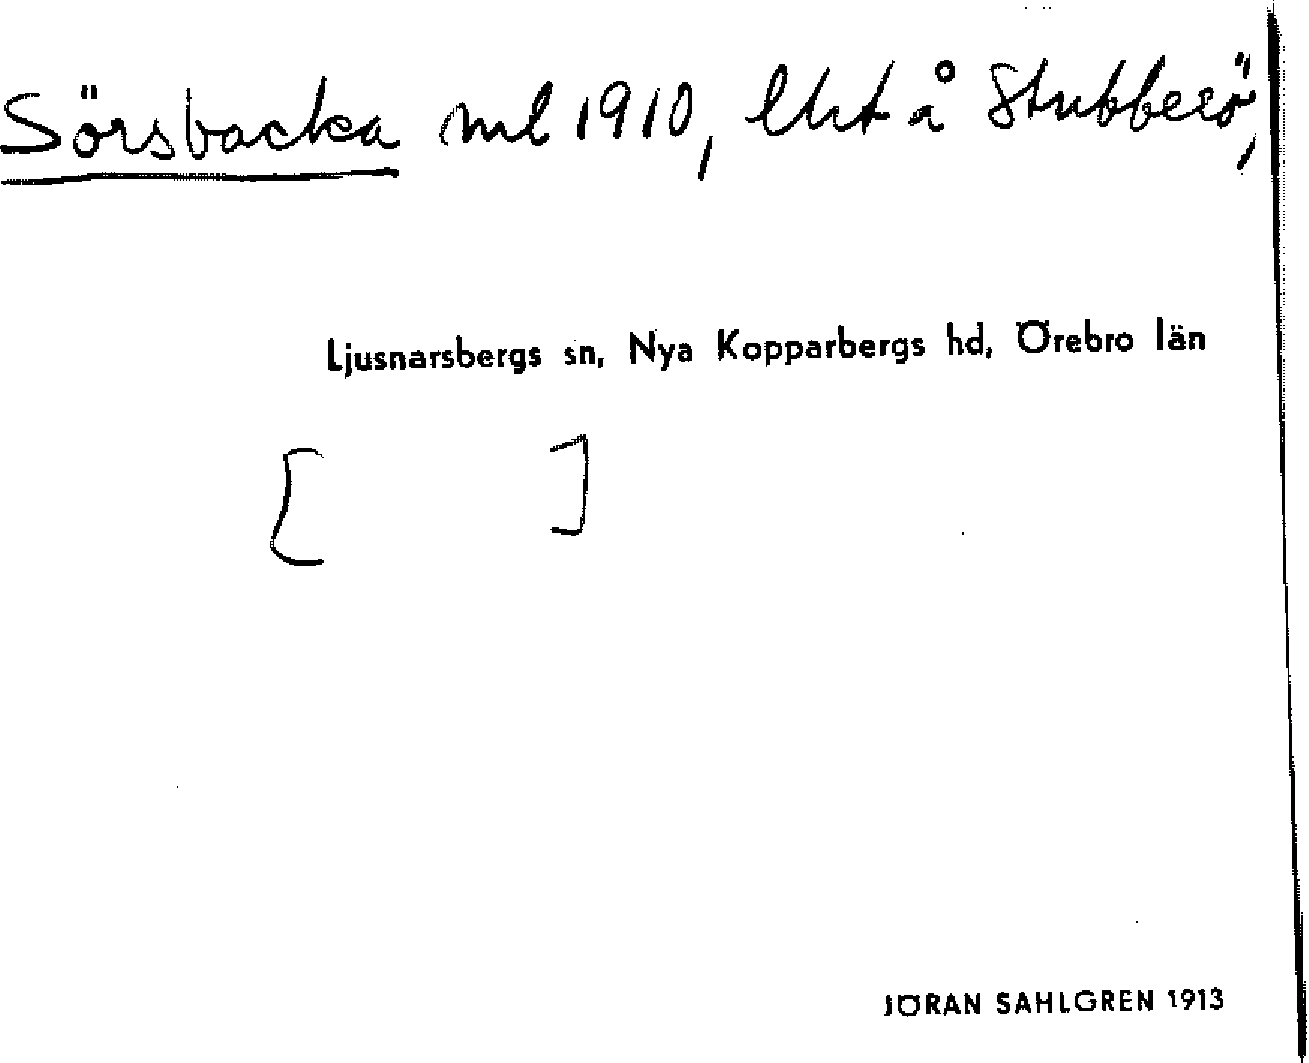 Sörsbacka ml 1910, lht å Stubberö,
Ljusnarsbergs sn, Nya Kopparbergs hd, Örebro län
[ ]
JÖRAN SAHLGREN 1913